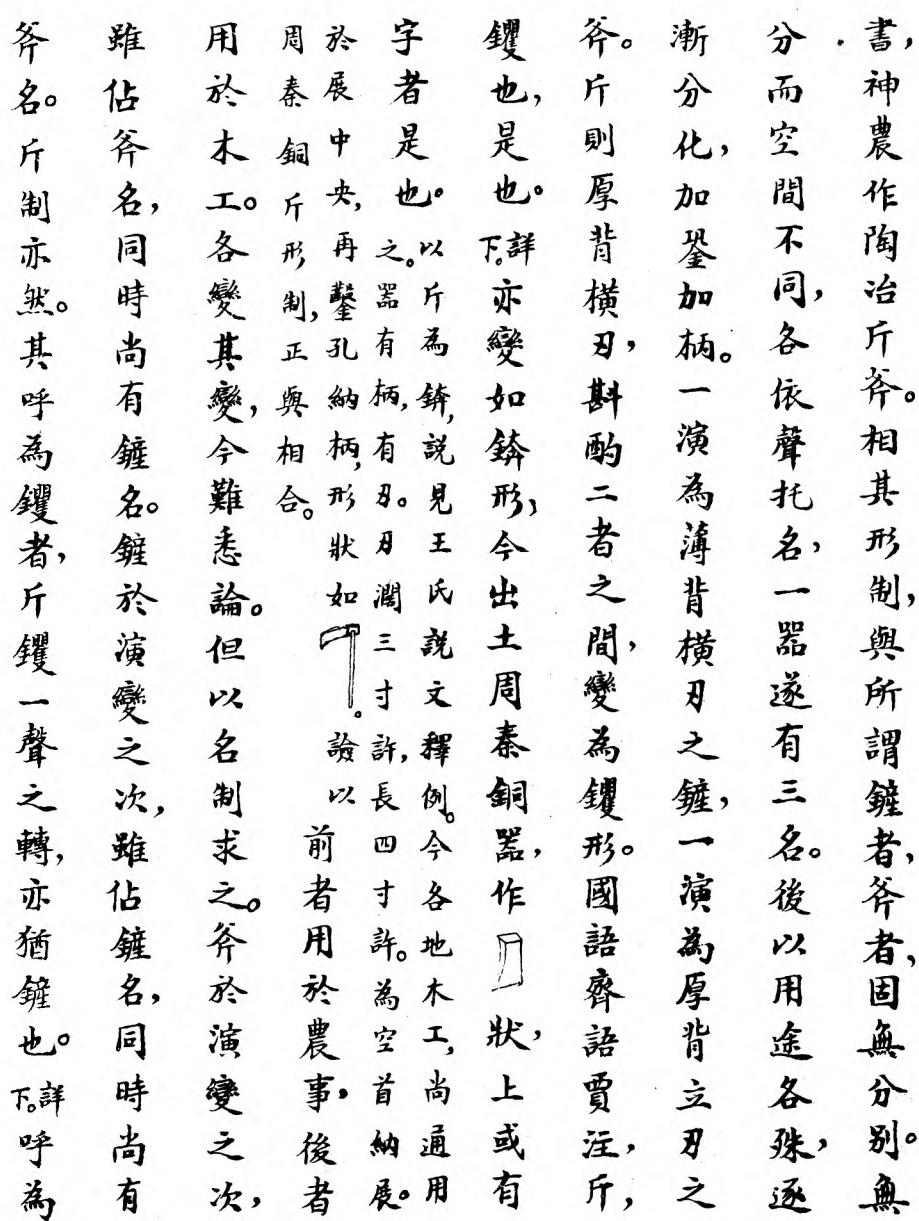 書，神農作陶冶斤斧。相其形制，與所謂鏟者，斧者，固無分別。無
分而空間不同，各依聲托名，一器遂有三名。後以用途各殊，逐
漸分化，加銎加柄。一演為薄背橫刃之鏟，一演為厚背立刃之
斧。斤則厚背橫刃，斟酌二者之間，變為钁形。國語齊語賈注，斤，
钁也，是也。詳下。亦變如錛形，今出土周秦銅器，作狀，上或有
字者是也。以斤為錛，說見王氏說文釋例。今各地木工，尚通用
之。器有柄，有刃。刃濶三寸許，長四寸許。為空首納展。
於展中央，再鑿孔納柄，形狀如。驗以
周秦銅斤形制，正與相合。前者用於農事，後者
用於木工。各變其變，今難悉論。但以名制求之。斧於演變之次，
雖佔斧名，同時尚有鏟名。鏟於演變之次，雖佔鏟名，同時尚有
斧名。斤制亦然。其呼為钁者，斤钁一聲之轉，亦猶鏟也。詳下。呼為